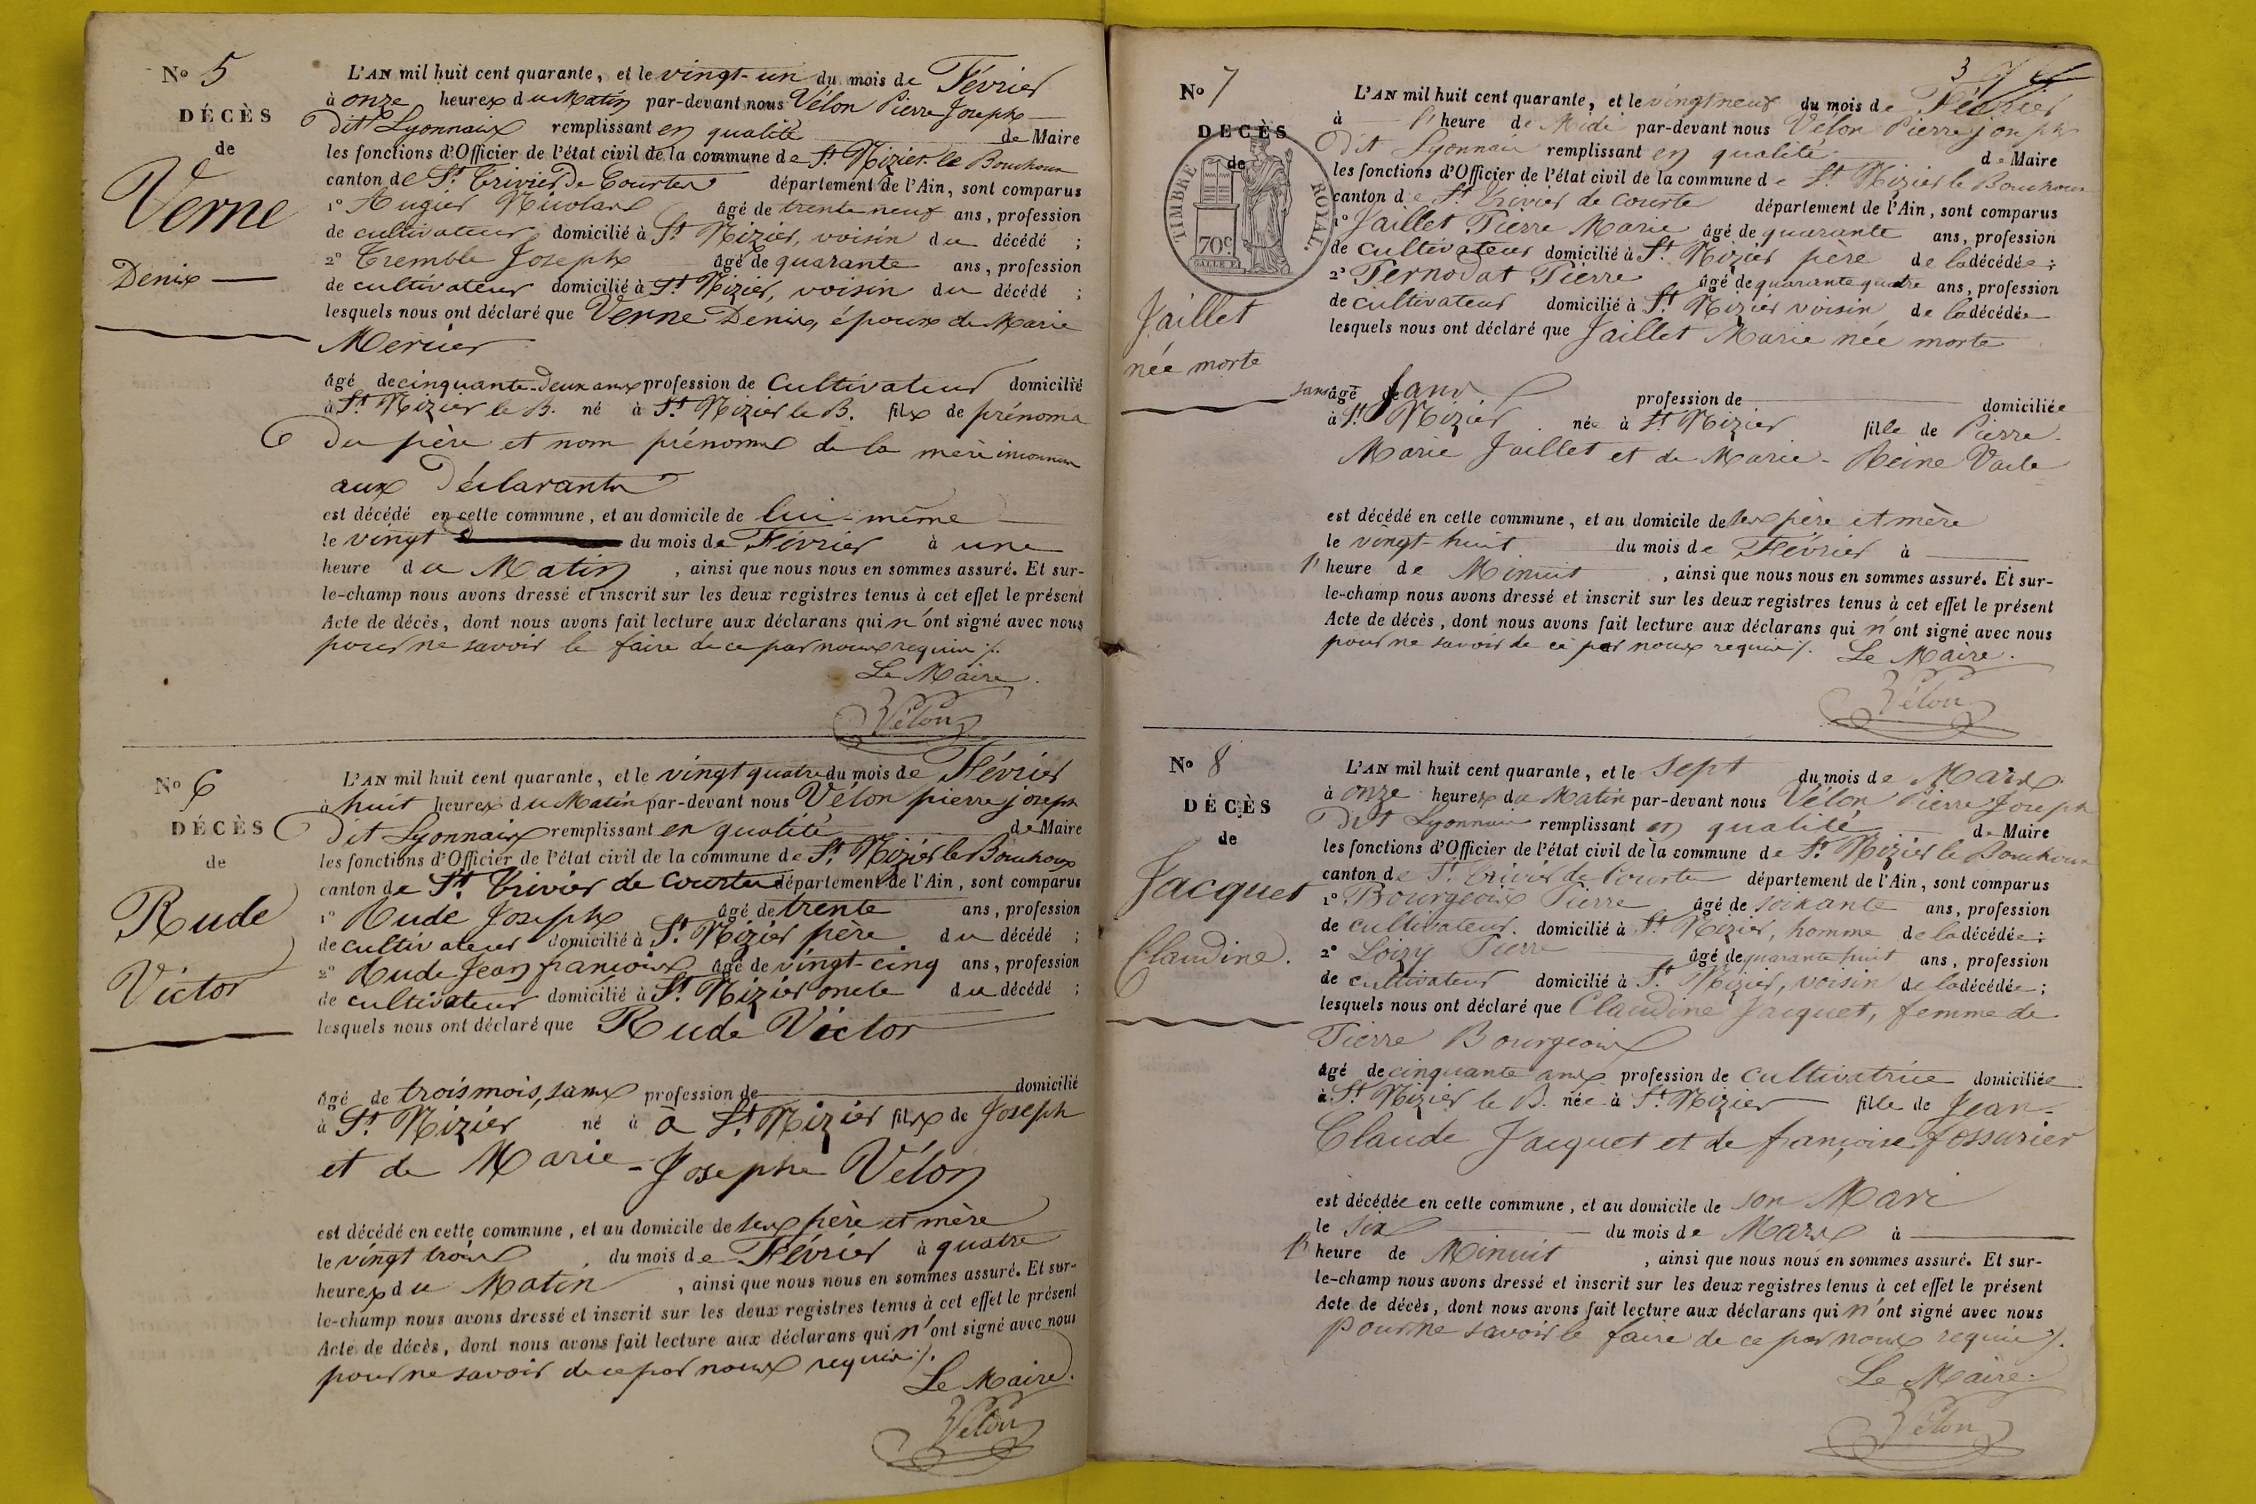 No 5
DÉCÈS
de
Verne
Denis
L'AN mil huit cent quarante, et le vingt-un du mois de Février
à onze heures du Matin par-devant nous Vélon Pierre Joseph
dit Lyonnais remplissant en qualité de Maire
les fonctions d'Officier de l'état civil de la commune de St Nizier le Bouchoux
canton de St Trivier de Courtes département de l'Ain, sont comparus
1o Augier Nicolas âgé de trente neuf ans, profession
de cultivateur domicilié à St Nizier, voisin du décédé ;
2o Tremble Joseph âgé de quarante ans, profession
de cultivateur domicilié à St Nizier, voisin du décédé ;
lesquels nous ont déclaré que Verne Denis, époux de Marie
Mercier
âgé de cinquante-deux ans profession de cultivateur domicilié
à St Nizier le B. né à St Nizier le B. fils de prénoms
du père et nom prénoms de la mère inconnus
aux déclarants
est décédé en cette commune, et au domicile de lui-même
le vingt du mois de Février à une
heure du Matin, ainsi que nous nous en sommes assuré. Et sur-
le-champ nous avons dressé et inscrit sur les deux registres tenus à cet effet le présent
Acte de décès, dont nous avons fait lecture aux déclarans qui n'ont signé avec nous
pour ne savoir le faire de ce par nous requis ./.
Le Maire.
Vélon
No 6
DÉCÈS
de
Rude
Victor
L'AN mil huit cent quarante, et le vingt quatre du mois de Février
à huit heures du Matin par-devant nous Vélon pierre joseph
dit Lyonnais remplissant en qualité de Maire
les fonctions d'Officier de l'état civil de la commune de St Nizier le Bouchoux
canton de St Trivier de Courtes département de l'Ain, sont comparus
1o Rude Joseph âgé de trente ans, profession
de cultivateur domicilié à St Nizier père du décédé ;
2o Rude Jean françois âgé de vingt-cinq ans, profession
de cultivateur domicilié à St Nizier oncle du décédé ;
lesquels nous ont déclaré que Rude Victor
âgé de trois mois, sans profession de domicilié
à St Nizier né à à St Nizier fils de Joseph
et de Marie-Josephe Vélon
est décédé en cette commune, et au domicile de ses père et mère
le vingt trois du mois de Février à quatre
heures du Matin, ainsi que nous nous en sommes assuré. Et sur-
le-champ nous avons dressé et inscrit sur les deux registres tenus à cet effet le présent
Acte de décès, dont nous avons fait lecture aux déclarans qui n'ont signé avec nous
pour ne savoir de ce par nous requis ./.
Le Maire.
Vélon
3
No 7
DÉCÈS
de
TIMBRE ROYAL
70c
Jaillet
née morte
L'AN mil huit cent quarante, et le vingt neuf du mois de Février
à l'heure de Midi par-devant nous Vélon Pierre joseph
dit Lyonnais remplissant en qualité de Maire
les fonctions d'Officier de l'état civil de la commune de St Nizier le Bouchoux
canton de St Trivier de Courtes département de l'Ain, sont comparus
1o Jaillet Pierre Marie âgé de quarante ans, profession
de cultivateur domicilié à St Nizier père de la décédée ;
2o Pernodat Pierre âgé de quarante quatre ans, profession
de cultivateur domicilié à St Nizier voisin de la décédée
lesquels nous ont déclaré que Jaillet Marie née morte
sans âgé de sans profession de domiciliée
à St Nizier née à St Nizier fille de Pierre-
Marie Jaillet et de Marie-Reine
est décédé en cette commune, et au domicile de ses père et mère
le vingt-huit du mois de Février à
l'heure de Minuit, ainsi que nous nous en sommes assuré. Et sur-
le-champ nous avons dressé et inscrit sur les deux registres tenus à cet effet le présent
Acte de décès, dont nous avons fait lecture aux déclarans qui n'ont signé avec nous
pour ne savoir de ce par nous requis ./. Le Maire.
Vélon
No 8
DÉCÈS
de
Jacquet
Claudine.
L'AN mil huit cent quarante, et le sept du mois de Mars
à onze heures du Matin par-devant nous Vélon Pierre Joseph
dit Lyonnais remplissant en qualité de Maire
les fonctions d'Officier de l'état civil de la commune de St Nizier le Bouchoux
canton de St Trivier de Courtes département de l'Ain, sont comparus
1o Bourgeois Pierre âgé de soixante ans, profession
de cultivateur. domicilié à St Nizier, homme de la décédée ;
2o Loizy Pierre âgé de quarante huit ans, profession
de cultivateur domicilié à St Nizier, voisin de la décédée ;
lesquels nous ont déclaré que Claudine Jacquet, femme de
Pierre Bourgeois
âgé de cinquante ans profession de cultivatrice domiciliée
à St Nizier le B. née à St Nizier fille de Jean-
Claude Jacquet et de françoise fossurier
est décédée en cette commune, et au domicile de son Mari
le six du mois de Mars à
l'heure de Minuit, ainsi que nous nous en sommes assuré. Et sur-
le-champ nous avons dressé et inscrit sur les deux registres tenus à cet effet le présent
Acte de décès, dont nous avons fait lecture aux déclarans qui n'ont signé avec nous
pour ne savoir le faire de ce par nous requis ./.
Le Maire.
Vélon